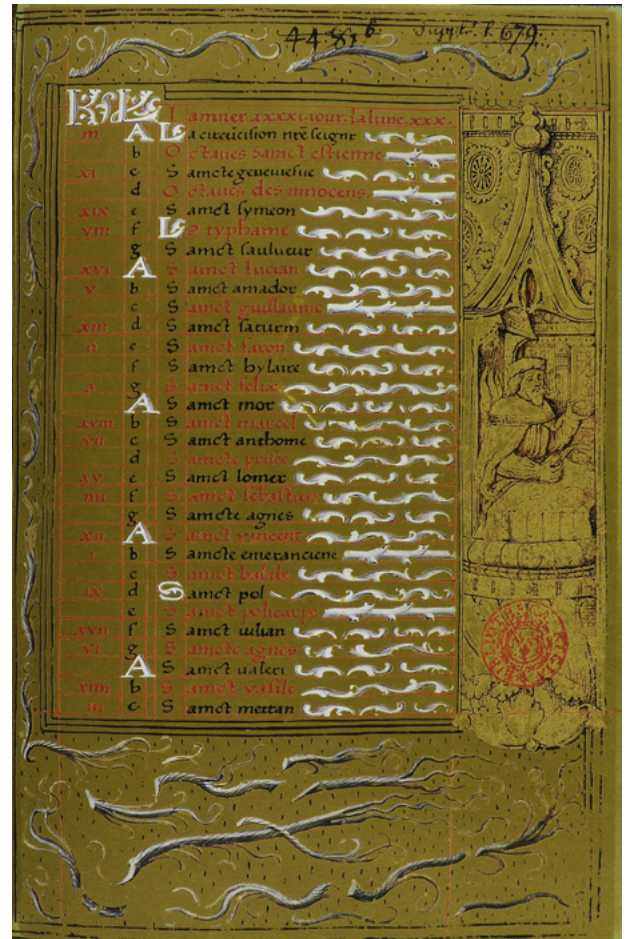 4481b Suppl. l. 679.
KL Ianuier a xxxi iour. la lune. xxx.
iii A La circūcision nr̄e seignr
b Octaues sainct estienne
xi c Saincte geneuiefue
d Octaues des innocens
xix e Sainct symeon
viii f La typhaine
g Sainct saulueur
xvi A Sainct lucian
v b Sainct amador
c Sainct guillaume
xiii d Sainct saturin
ii e Sainct faron
f Sainct hylaire
x g Sainct felix
A Sainct mor
xviii b Sainct marcel
vii c Sainct anthoine
d Saincte prisce
xv e Sainct lomer
iiii f Sainct sebastien
g Saincte agnes
xii A Sainct vincent
i b Saincte emeranciene
c Sainct babile
ix d Sainct pol
e Sainct policarpe
xvii f Sainct iulian
vi g Saincte agnes
A Sainct ualeri
xiiii b Sainct vasile
iii c Sainct mettan